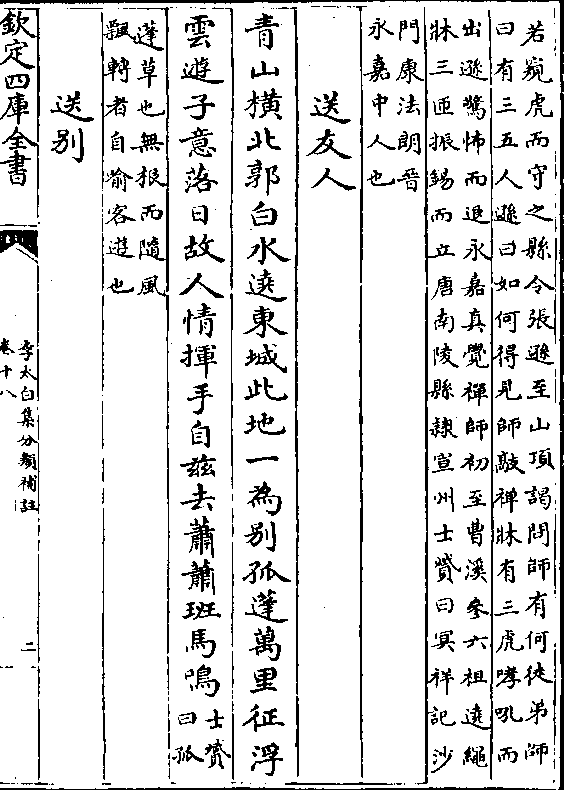 若窺虎而守之縣令張遜至山頂謁問師有何徒弟師
曰有三五人遜曰如何得見師敲禅牀有三虎哮吼而
出遜驚怖而退永嘉真覺禪師初至曹溪參六祖遶繩
牀三匝振錫而立唐南陵縣隸宣州士贇曰冥祥記沙
門康法朗晉
永嘉中人也
送友人
青山橫北郭白水遶東城此地一為別孤蓬萬里征浮
雲遊子意落日故人情揮手自兹去蕭蕭班馬鳴士贇
曰孤
蓬草也無根而隨風
飄轉者自喻客遊也
送别
欽定四庫全書
李太白集分類補註
卷十八
二